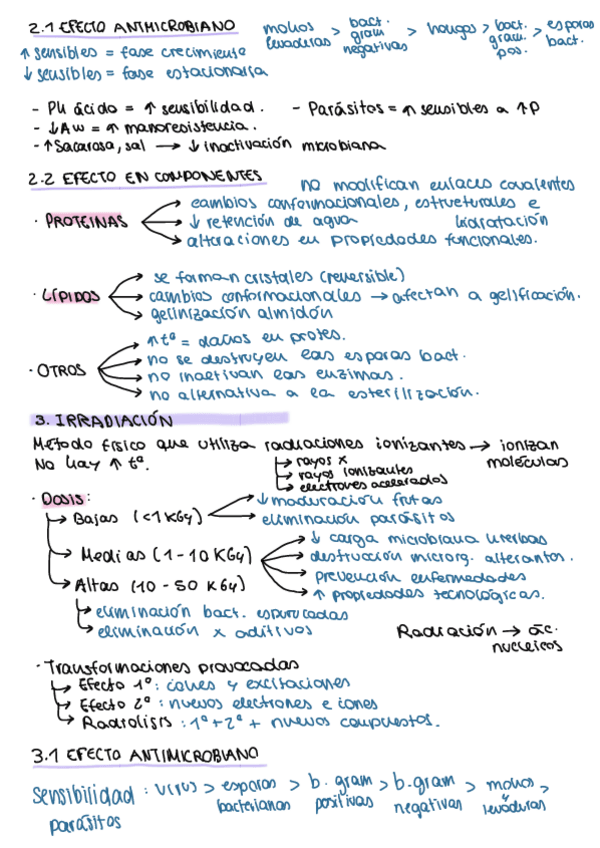 2.1 EFECTO ANTIMICROBIANO
mohos levaduras > bact. gram negativas > hongos > bact. gram. pos. > esporas bact.
↑ sensibles = fase crecimiento
↓ sensibles = fase estacionaria
- PH ácido = ↑ sensibilidad. - Parásitos = ↑ sensibles a ↑P
- ↓Aw = ↑ manoresistencia.
- ↑Sacarosa, sal → ↓ inactivación microbiana
2.2 EFECTO EN COMPONENTES
no modifican enlaces covalentes
· PROTEINAS
cambios conformacionales, estructurales e hidratación
↓ retención de agua
alteraciones en propiedades funcionales.
· LÍPIDOS
se forman cristales (reversible)
cambios conformacionales → afectan a gelificación.
gelinización almidón
· OTROS
↑tª = daños en protes.
no se destruyen las esporas bact.
no inactivan las enzimas.
no alternativa a la esterilización.
3. IRRADIACIÓN
Método físico que utiliza radiaciones ionizantes → ionizan moléculas
No hay ↑ tª.
rayos x
rayos ionizantes
electrones acelerados
· Dosis:
Bajas (<1 KGy)
↓ maduración frutas
eliminación parásitos
Medias (1 - 10 KGy)
↓ carga microbiana hierbas
destrucción microrg. alterantes.
prevención enfermedades
↑ propiedades tecnológicas.
Altas (10 - 50 KGy)
eliminación bact. esporuladas
eliminación x aditivos
Radiación → ác. nucleicos
· Transformaciones provocadas
Efecto 1º: iones y excitaciones
Efecto 2º: nuevos electrones e iones
Radiolisis: 1º+2º + nuevos compuestos.
3.1 EFECTO ANTIMICROBIANO
Sensibilidad: virus > esporas bacterianas > b. gram positivas > b. gram negativas > mohos y levaduras >
parásitos